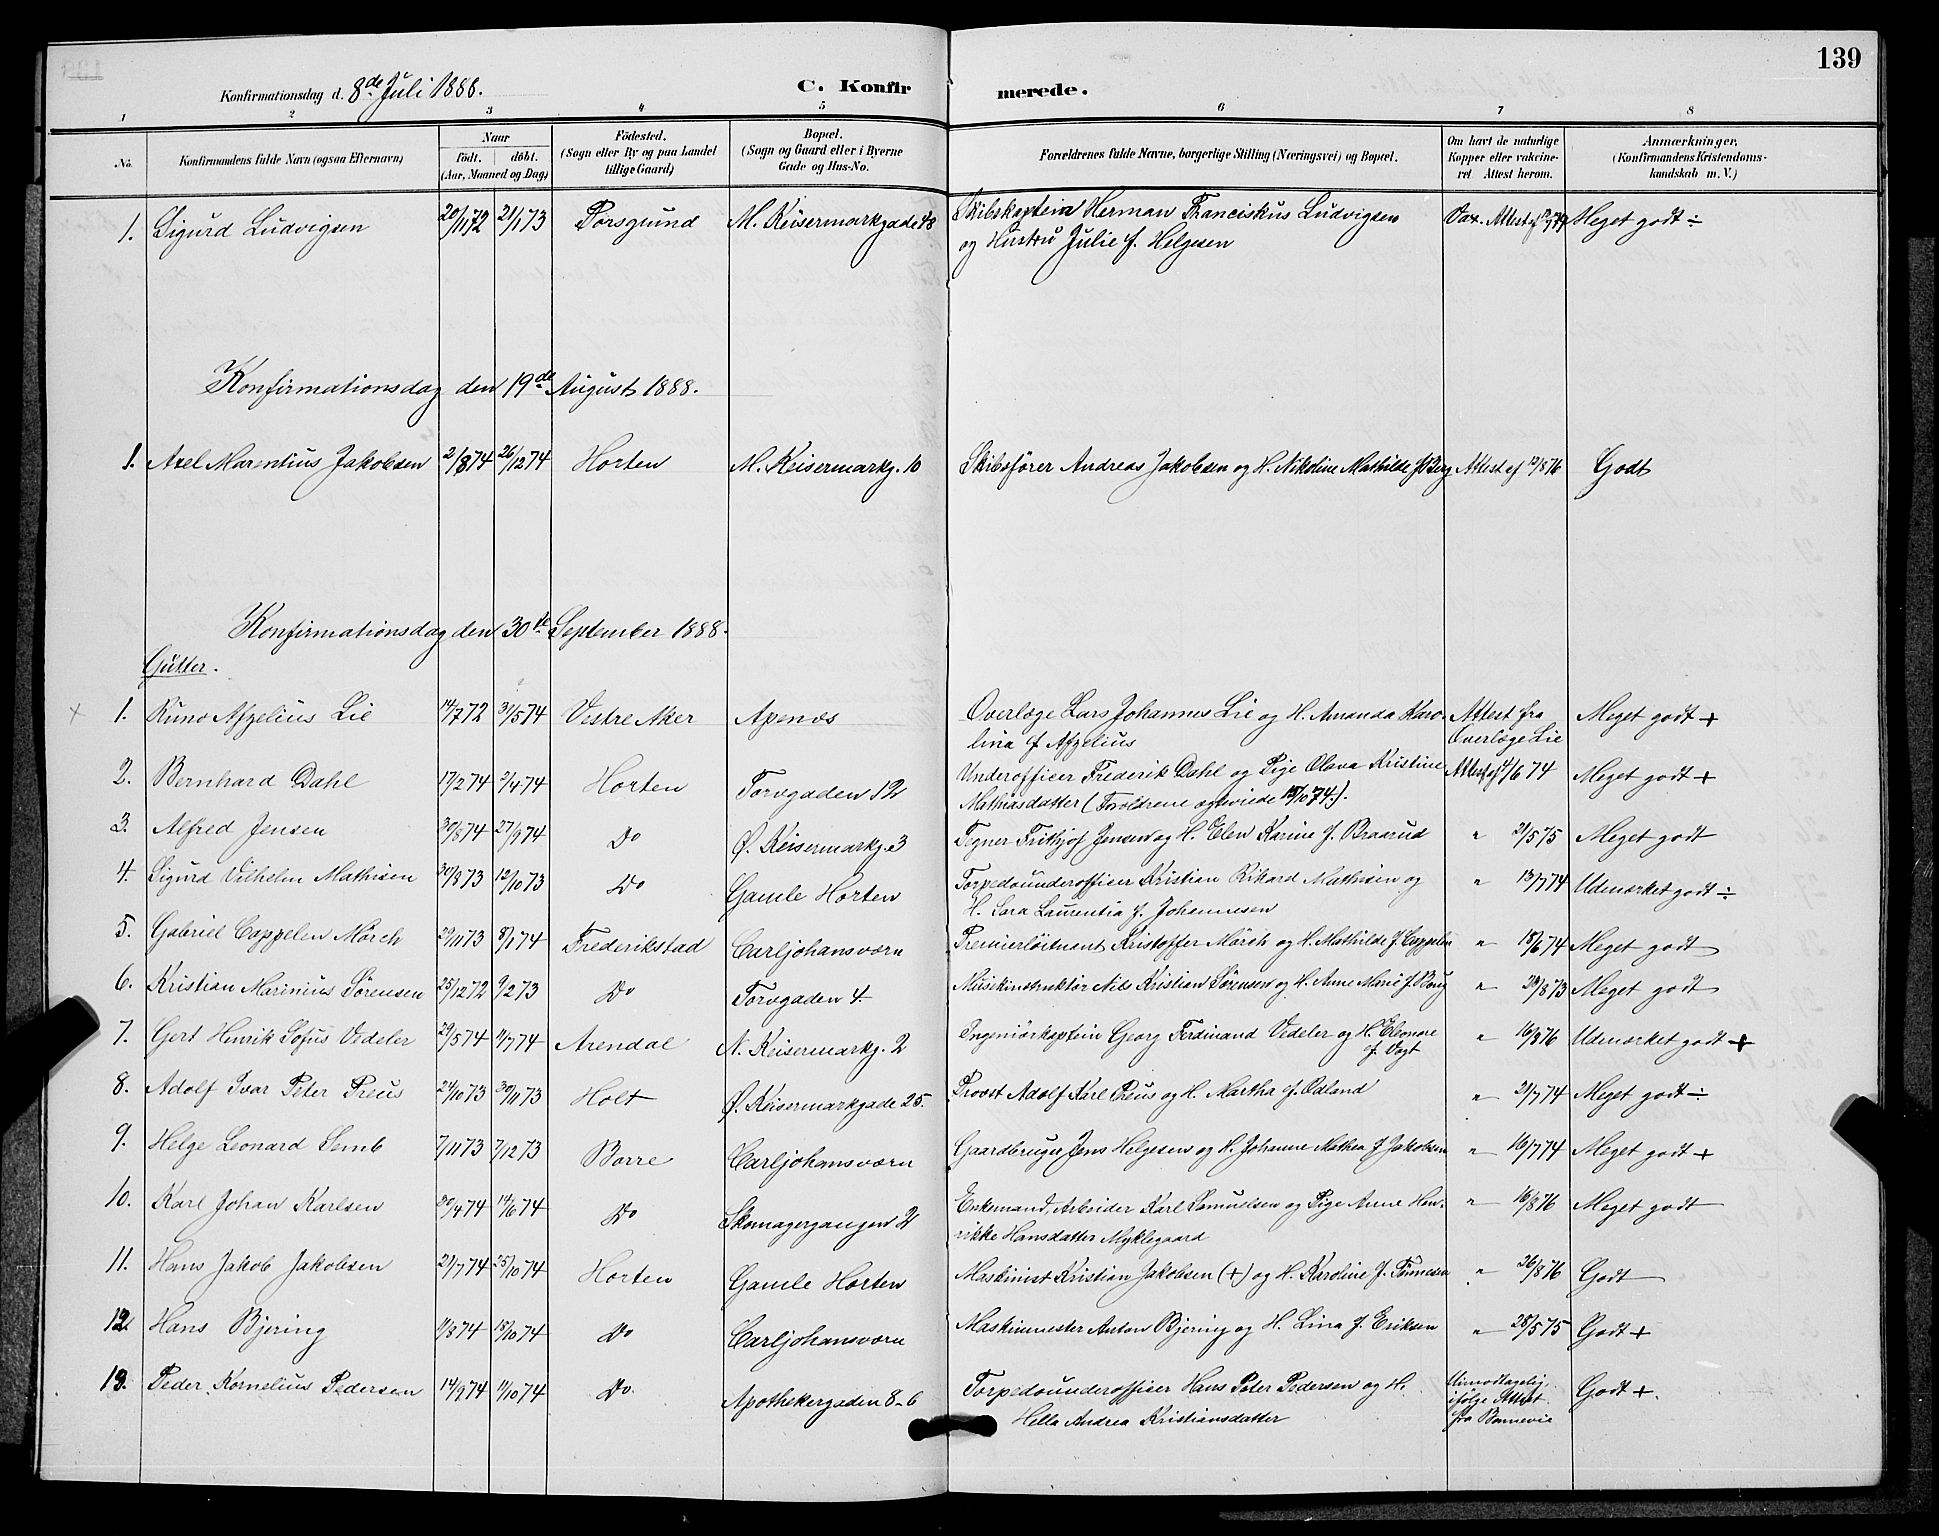 139
Konfirmationsdag d. 8de Juli 1888. C. Konfirmerede.
1 2 3 4 5 6 7 8
No. Konfirmandens fulde Navn (ogsaa Efternavn) Naar født. døbt. (Aar, Maaned og Dag) Fødested. (Sogn eller By og paa Landet tillige Gaard) Bopæl. (Sogn og Gaard eller i Byerne Gade og Hus-No. Forældrenes fulde Navne, borgerlige Stilling (Næringsvei) og Bopæl. Om havt de naturlige Kopper eller vakcineret Attest herom. Anmærkninger, (Konfirmandens Kristendomskundskab m. V.)
1. Sigurd Ludvigsen 20/11 72 21/1 73 Porsgrund M. Keisermarkgade 18 Skibskaptein Herman Franciskus Ludvigsen Vax. Attest Meget godt ÷
og Hustru Julie f. Helgesen
Konfirmationsdag den 19de August 1888.
1. Axel Marentius Jakobsen 2/8 74 26/12 74 Horten M. Keisermarkg. 10 Skibsfører Andreas Jakobsen og H. Nikoline Mathilde f. Berg Attest af 12/8 76 Godt
Konfirmationsdag den 30te September 1888.
Gutter.
× 1. Runo Afzelius Lie 14/7 72 31/5 74 Vestre Aker Apenæs Overlæge Lars Johannes Lie og H. Amanda Karo- Attest fra Meget godt +
lina f Afzelius Overlæge Lie
2. Bernhard Dahl 17/2 74 2/4 74 Horten Torvgaden 12 Underofficer Frederik Dahl og Pige Olava Kristine Attest af 4/6 74 Meget godt +
Mathiasdatter (Forældrene ægteviede 18/10 74).
3. Alfred Jensen 30/8 74 27/9 74 Do Ø. Keisermarkg. 3 Tegner Frithjof Jensen og H. Elen Karine f. Braarud " 21/5 75 Meget godt
4. Sigurd Vilhelm Mathisen 30/8 73 12/10 73 Do Gamle Horten Torpedounderofficer Kristian Rikard Mathisen og " 13/7 74 Udmærket godt ÷
H. Sara Laurentia f. Johannesen
5. Gabriel Cappelen Mørch 29/11 73 8/1 74 Frederikstad Carljohansværn Premierløitnant Kristoffer Mørch og H. Mathilde f. Cappelen " 18/6 74 Meget godt
6. Kristian Marinius Sørensen 25/12 72 9/2 73 Do Torvgaden 4 Musikinstruktør Nils Kristian Sørensen og H. Anne Marie f. " 29/8 73 Meget godt
7. Gert Henrik Sofus Vedeler 29/5 74 11/7 74 Arendal N. Keisermarkg. 2 Ingeniørkaptein Georg Ferdinand Vedeler og H. Eleonore " 16/8 76 Udmærket godt +
f. Vogt
8. Adolf Ivar Peter Preus 24/10 73 30/11 73 Holt Ø. Keisermarkgade 25. Provst Adolf Karl Preus og H. Martha f. Ødland " 21/7 74 Meget godt ÷
9. Helge Leonard Semb 7/11 73 7/12 73 Borre Carljohansværn Gaardbruger Jens Helgesen og H. Johanne Mathea f Jakobsen " 16/7 74 Meget godt +
10. Karl Johan Karlsen 20/4 74 14/6 74 Do Skomagergangen 2 Enkemand, Arbeider Karl Samuelsen og Pige Anne Hen- " 16/8 76 Meget godt
rikke Hansdatter Myklegaard
11. Hans Jakob Jakobsen 21/7 74 25/10 74 Horten Gamle Horten Maskinist Kristian Jakobsen (+) og H. Karoline f. Tønnesen " 26/8 76 Godt
12. Hans Bjering 11/8 74 18/10 74 Do Carljohansværn Maskinmester Anton Bjering og H. Lina f. Eriksen " 28/5 75 Godt +
13. Peder Kornelius Pedersen 14/9 74 11/10 74 Do. Apothekergaden 8-6 Torpedounderofficer Hans Peter Pedersen og H. Uimodtagelig Godt +.
Hella Andrea Kristiansdatter ifølge Attest
fra